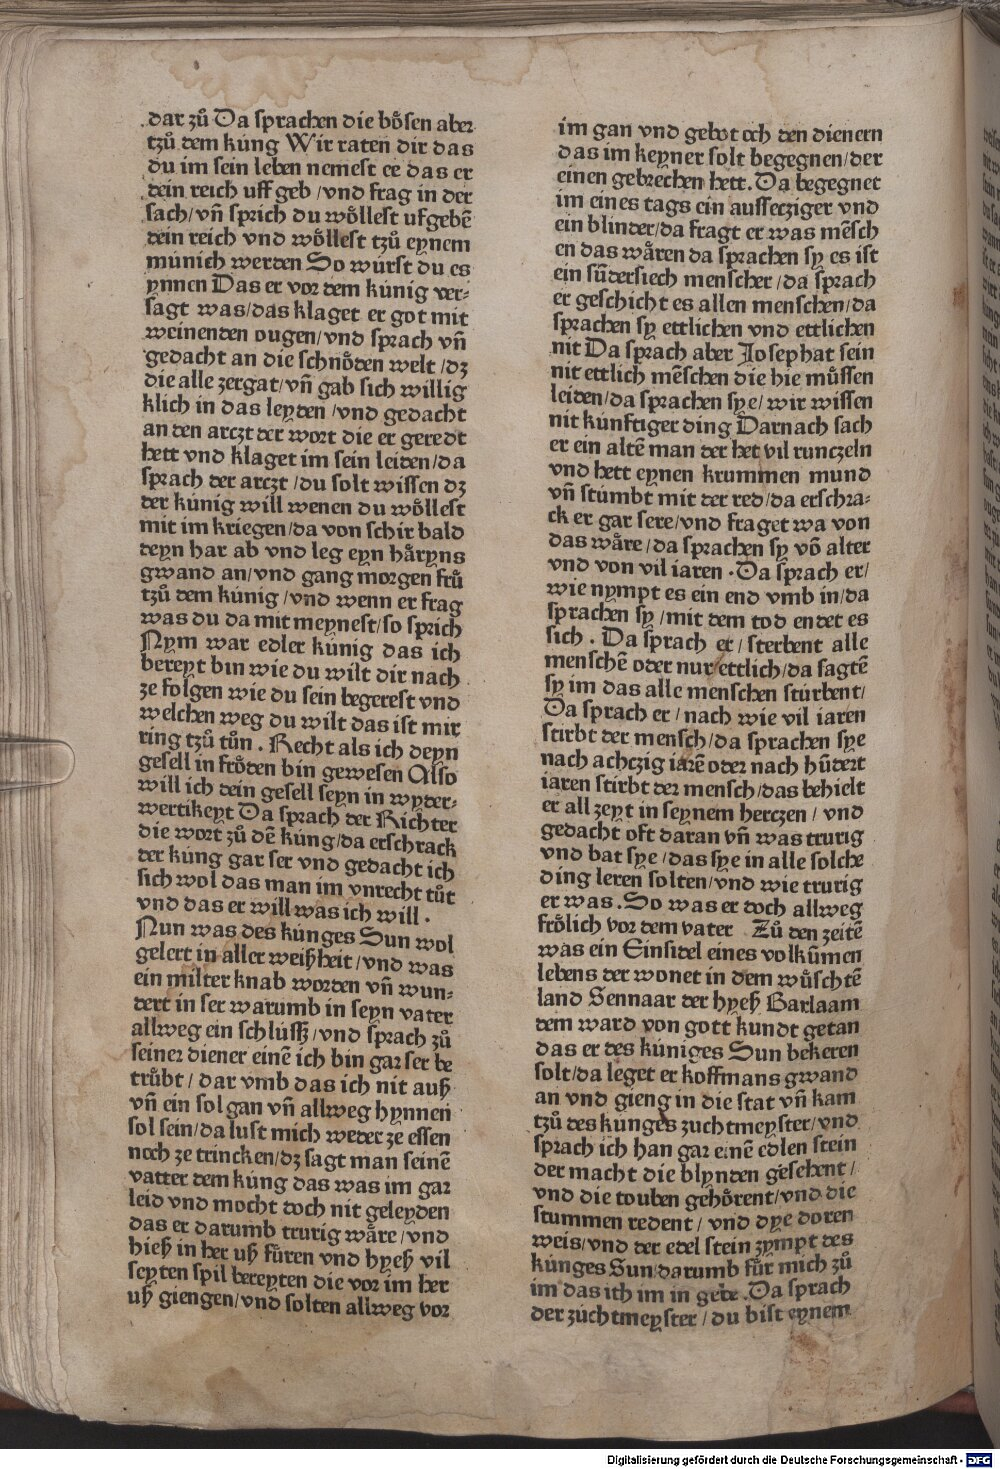 dar zů Da sprachen die bo̊sen aber
tzů dem kúng Wir raten dir das
du im sein leben nemest ee das er
dein reich uff geb /vnd frag in der
sach/vn̄ sprich du wo̊llest ufgebē
dein reich vnd wo̊llest tzů eynem
múnich werden So wúrst du es
ynnen Das er vor dem kúnig ver⸗
sagt was/das klaget er got mit
weinenden ougen/vnd sprach vn̄
gedacht an die schno̊den welt /dz
die alle zergat/vn̄ gab sich willig
klich in das leyden /vnd gedacht
an den arczt der wort die er geredt
hett vnd klaget im sein leiden/da
sprach der arczt /du solt wissen dz
der kúnig will wenen du wo̊llest
mit im kriegen/da von schir bald
deyn har ab vnd leg eyn håryns
gwand an/vnd gang morgen frů
tzů dem kúnig /vnd wenn er frag
was du da mit meynest/so sprich
Nym war edler kúnig das ich
bereyt bin wie du wilt dir nach
ze folgen wie du sein begerest vnd
welchen weg du wilt das ist mir
ring tzů tůn . Recht als ich deyn
gesell in fro̊den bin gewesen Also
will ich dein gesell seyn in wyder⸗
wertikeyt Da sprach der Richter
die wort zů dē kúng/da erschrack
der kúng gar ser vnd gedacht ich
sich wol das man im vnrecht tůt
vnd das er will was ich will .
Nun was des kúnges Sun wol
gelert in aller weißheit /vnd was
ein milter knab worden vn̄ wun⸗
dert in ser warumb in seyn vater
allweg ein schlússz /vnd sprach zů
seiner diener einē ich bin gar ser be
trůbt / dar vmb das ich nit auß
vn̄ ein sol gan vn̄ allweg hynnen
sol sein/da lust mich weder ze essen
noch ze trincken/dz sagt man seinē
vatter dem kúng das was im gar
leid vnd mocht doch nit geleyden
das er darumb trurig wåre /vnd
hieß in her uß fůren vnd hyeß vil
seyten spil bereyten die vor im her
uß giengen/vnd solten allweg vor
im gan vnd gebot och den dienern
das im keyner solt begegnen/der
einen gebrechen hett. Da begegnet
im eines tags ein aussecziger vnd
ein blinder/da fragt er was mēsch
en das wåren da sprachen sy es ist
ein sūdersiech menscher /da sprach
er geschicht es allen menschen/da
sprachen sy ettlichen vnd ettlichen
nit Da sprach aber Josephat sein
nit ettlich mēschen die hie můssen
leiden/da sprachen sye/ wir wissen
nit kúnftiger ding Darnach sach
er ein altē man der het vil runczeln
vnd hett eynen krummen mund
vn̄ stúmbt mit der red/da erschra⸗
ck er gar sere/vnd fraget wa von
das wåre /da sprachen sy vō alter
vnd von vil iaren . Da sprach er/
wie nympt es ein end vmb in/da
sprachen sy /mit dem tod endet es
sich . Da sprach er/ sterbent alle
menschē oder nur ettlich/da sagtē
sy im das alle menschen stúrbent/
Da sprach er / nach wie vil iaren
stirbt der mensch/da sprachen sye
nach achczig iarē oder nach hūdert
iaren stirbt der mensch/das behielt
er all zeyt in seynem herczen / vnd
gedacht oft daran vn̄ was trurig
vnd bat sye /das sye in alle solche
ding leren solten/vnd wie trurig
er was .So was er doch allweg
fro̊lich vor dem vater Zů den zeitē
was ein Einsidel eines volkūmen
lebens der wonet in dem wůschtē
land Sennaar der hyeß Barlaam
dem ward von gott kundt getan
das er des kúniges Sun bekeren
solt/da leget er koffmans gwand
an vnd gieng in die stat vn̄ kam
tzů des kúnges zuchtmeyster/vnd
sprach ich han gar einē edlen stein
der macht die blynden gesehent /
vnd die touben geho̊rent/vnd die
stummen redent / vnd dye doren
weis/vnd der edel stein zympt des
kúnges Sun/darumb fůr mich zů
im das ich im in gebe .Da sprach
der zúchtmeyster /du bist eynem
Digitalisierung gefördert durch die Deutsche Forschungsgemeinschaft - DFG